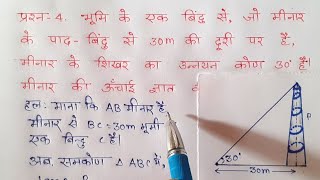 प्रश्न:-4. भूमि के एक बिंदु से, जो मीनार
के पाद-बिंदु से 30m की दूरी पर है,
मीनार के शिखर का उन्नयन कोण 30° है।
मीनार की ऊँचाई ज्ञात
हल: माना कि AB मीनार है,
मीनार से BC = 30m भूमी
एक बिन्दु C है।
अब, समकोण △ ABC में,
30°
30m